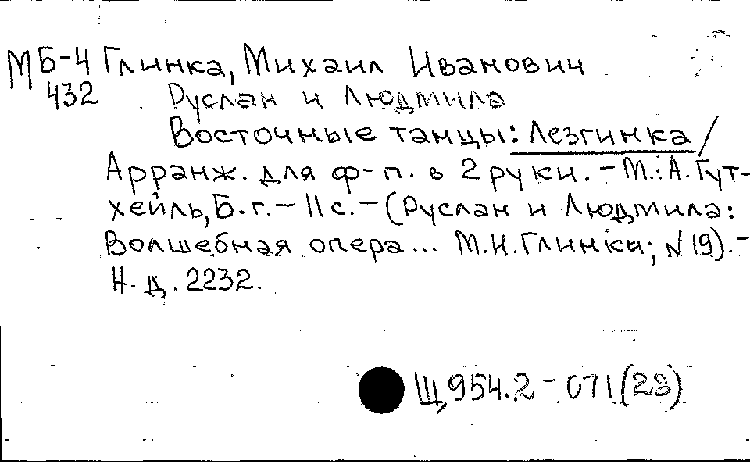 МБ-4 Глинка, Михаил Иванович
432 Руслан и Людмила
Восточные танцы: Лезгинка /
Арранж. для ф-п. в 2 руки. - М.: А. Гут-
хейль, Б.г. - 11 с. - (Руслан и Людмила:
Волшебная опера... М.И. Глинки; №19). -
Н.д. 2232.
Щ954.2-071(28)